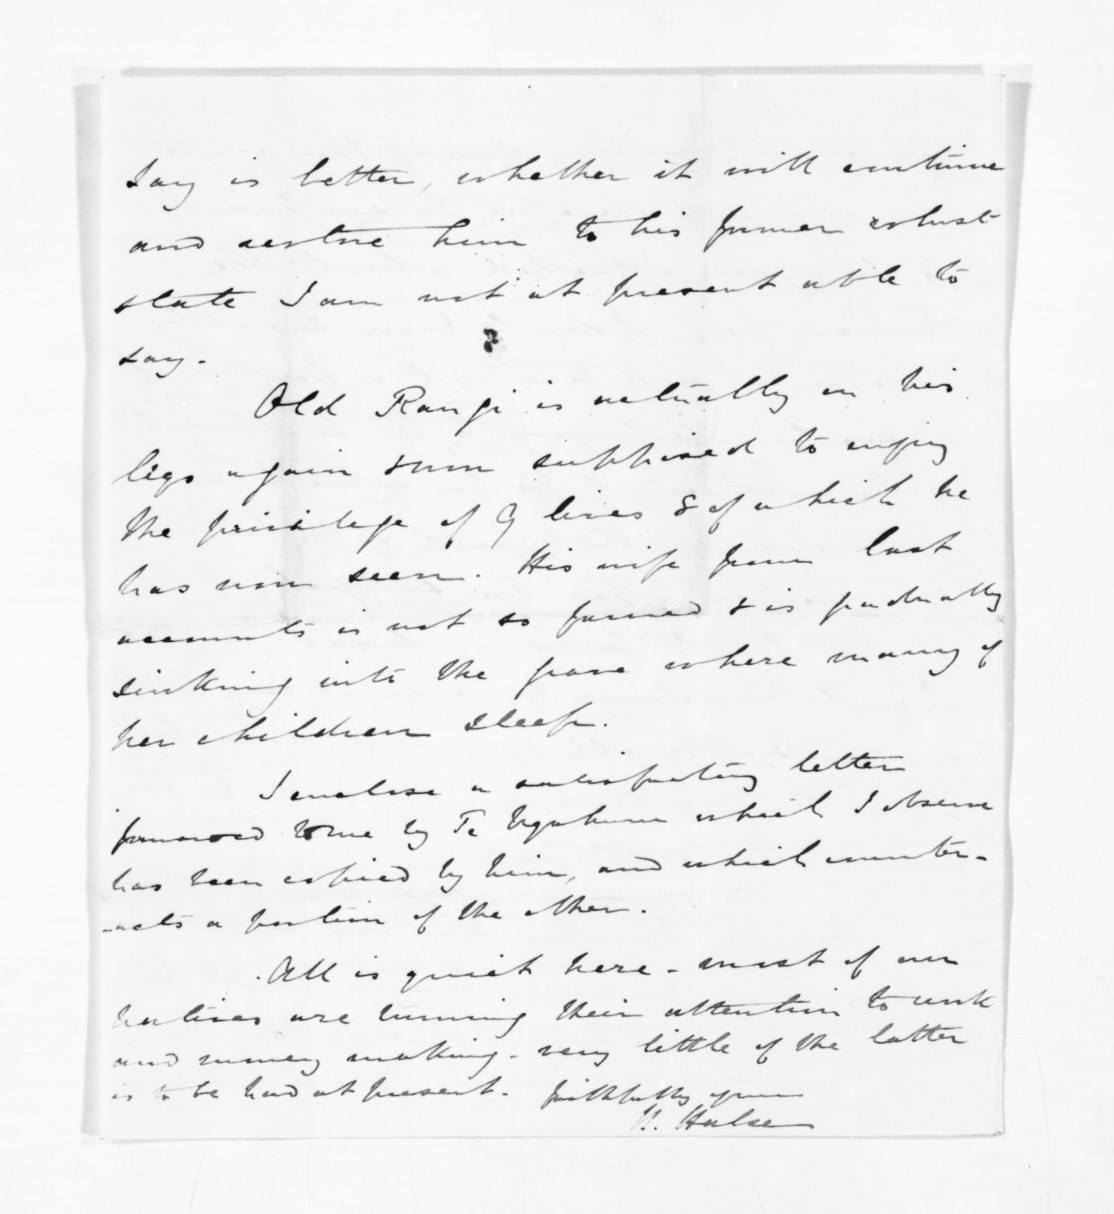 say is better, whether it will continue
and restore him to his former robust
state I am not at present able to
say.
Old Rangi is actually on his
legs again & was supposed to enjoy
the privilege of 9 lives & of which he
has now seen. His wife from last
accounts is not so favored & is gradually
sinking into the grave where many of
her children sleep.
I enclose a satisfactory letter
forwarded to me by Te Ngahuru which I observe
has been copied by him, and which counter-
-acts a portion of the other.
All is quiet here - most of our
natives are turning their attention to work
and money making - very little of the latter
is to be had at present. faithfully yours
H. Halse